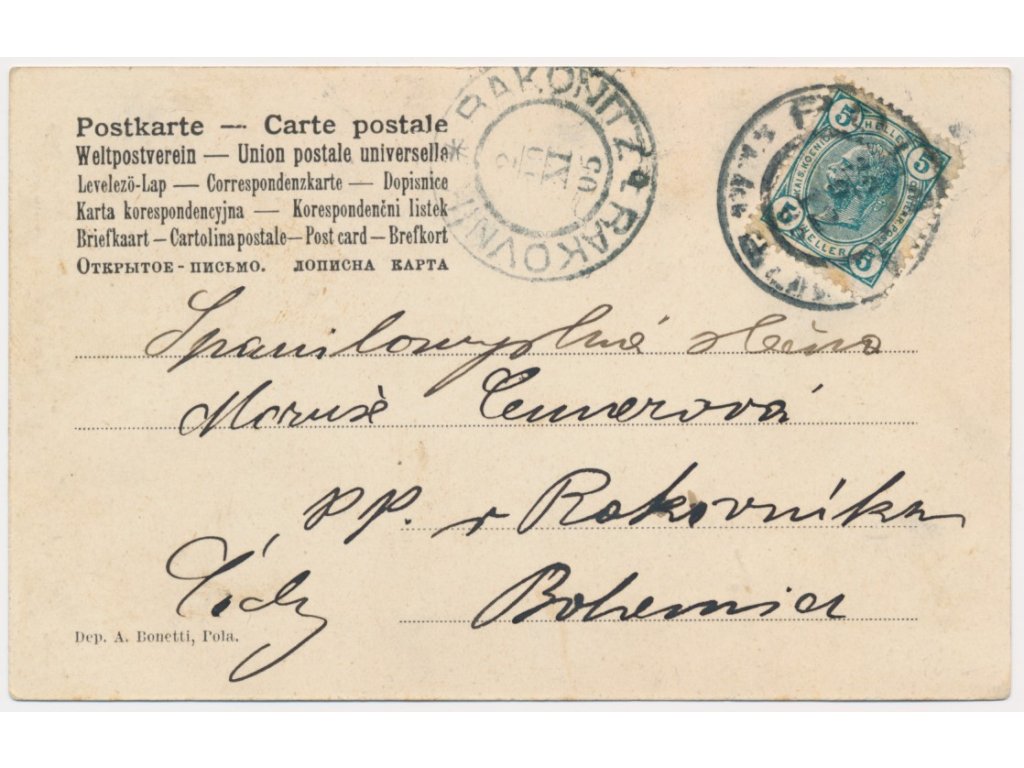 Postkarte — Carte postale
Weltpostverein — Union postale universelle
Levelezö-Lap — Correspondenzkarte — Dopisnice
Karta korespondencyjna — Korespondenčni listek
Briefkaart — Cartolina postale — Post card — Brefkort
Открытое - письмо. Дописна карта
* RAKONITZ 1 RAKOVNÍK
IX
05
5 5
HELLER
5 5
HELLER
KAIS. KOENIG
Spanilomyslná slečna
Maruše
pp. v Rakovníka
Lidy
Bohemia
Dep. A. Bonetti, Pola.